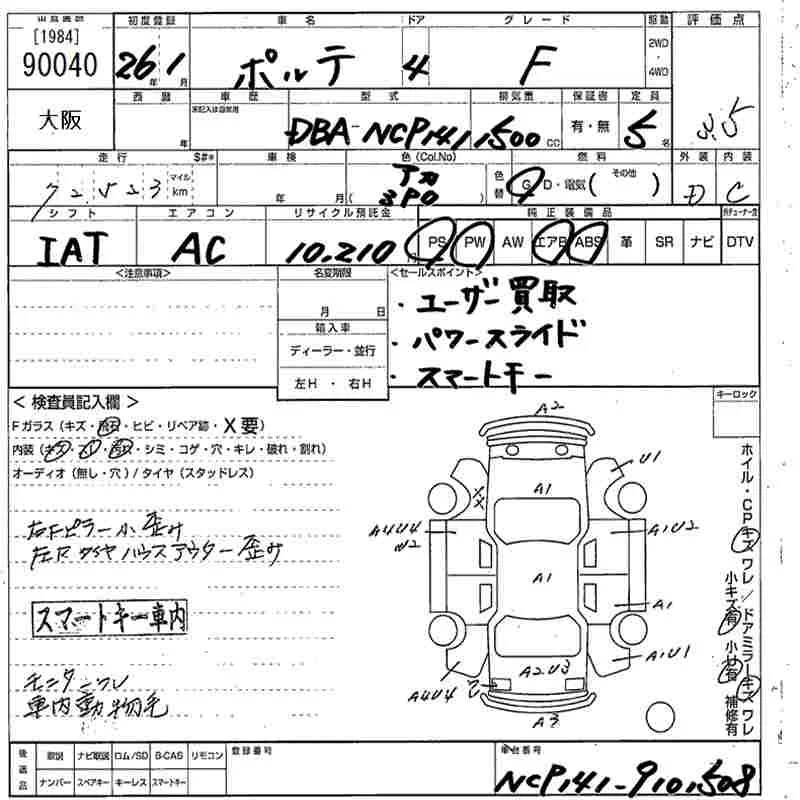 [1984]
90040
初度登録 車名 ドア グレード 駆動 評価点
26年 1月 ポルテ 4 F 2WD・4WD
大阪
西暦 車歴 型式 排気量 保証書 定員
未記入は自家用
年 DBA-NCP141 1500cc 有・無 5名
3.5
走行 S#* 車検 色(Col.No) 燃料 外装 内装
72,523 マイル km 年 月 ( 3P0 ) 色替 G・D・電気( その他 ) D C
シフト エアコン リサイクル預託金 純正装備品
IAT AC 10.210円 PS PW AW エアB ABS 革 SR ナビ DTV
<注意事項> 名変期限 <セールスポイント>
月 日
・ユーザー買取
輸入車
ディーラー・並行
・パワースライド
左H・右H
・スマートキー
キーロック
<検査員記入欄>
Fガラス(キズ・飛石・ヒビ・リペア跡・X要)
内装(キズ・・・シミ・コゲ・穴・キレ・破れ・割れ)
オーディオ(無し・穴)/タイヤ(スタッドレス)
右Fピラー小歪み
左Rタイヤハウスアウター歪み
スマートキー車内
モニターワレ
車内動物毛
A2
U1
A1
XX
A4U4
A1U2
A1
A1
A2U3
A1U1
A4U4
A3
ホイル・CPキズ ワレ/ドアミラーキズ ワレ
小キズ有 小凹有 補修有
後返品 取説 ナビ取説 ロム/SD B-CAS リモコン 登録番号 車台番号
ナンバー スペアキー キーレス スマートキー
NCP141-9101508